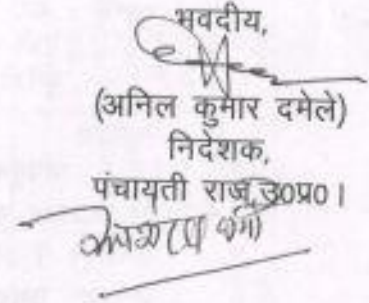 भवदीय,
(अनिल कुमार दमेले)
निदेशक,
पंचायती राज, उ०प्र०।